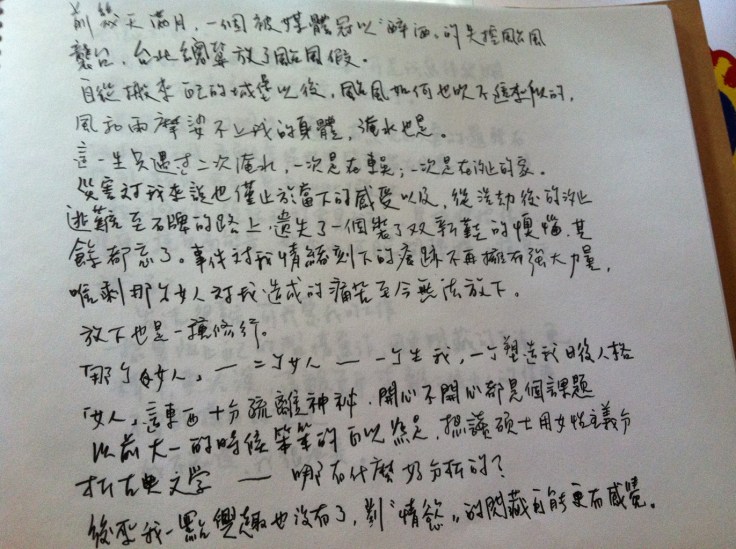 前幾天滿月，一個被媒體冠以“醉酒”的失控颱風
襲台，台北總算放了颱風假。
自從搬來自己的城堡以後，颱風如何也吹不進來似的，
風和雨摩娑不上我的身體，淹水也是。
這一生只遇過二次淹水，一次是在東吳；一次是在汐止的家。
災害對我來說也僅止於當下的感受以及，從浩劫後的汐止
逃難至石牌的路上，遺失了一個裝了双新鞋的懊惱，其
餘都忘了。事件對我情緒刻下的痕跡不再擁有強大力量，
唯剩那个女人對我造成的痛苦至今無法放下。
放下也是一種修行。
「那个女人」— 二个女人 — 一个生我，一个塑造我日後人格
「女人」這東西十分疏離神神，開心不開心都是個課題
以前大一的時候笨笨的自以為是，想讀碩士用女性主義分
析古典文學 — 哪有什麼好分析的？
後來我一點興趣也沒有了，對“情慾”的閱藏可能更有感覺。